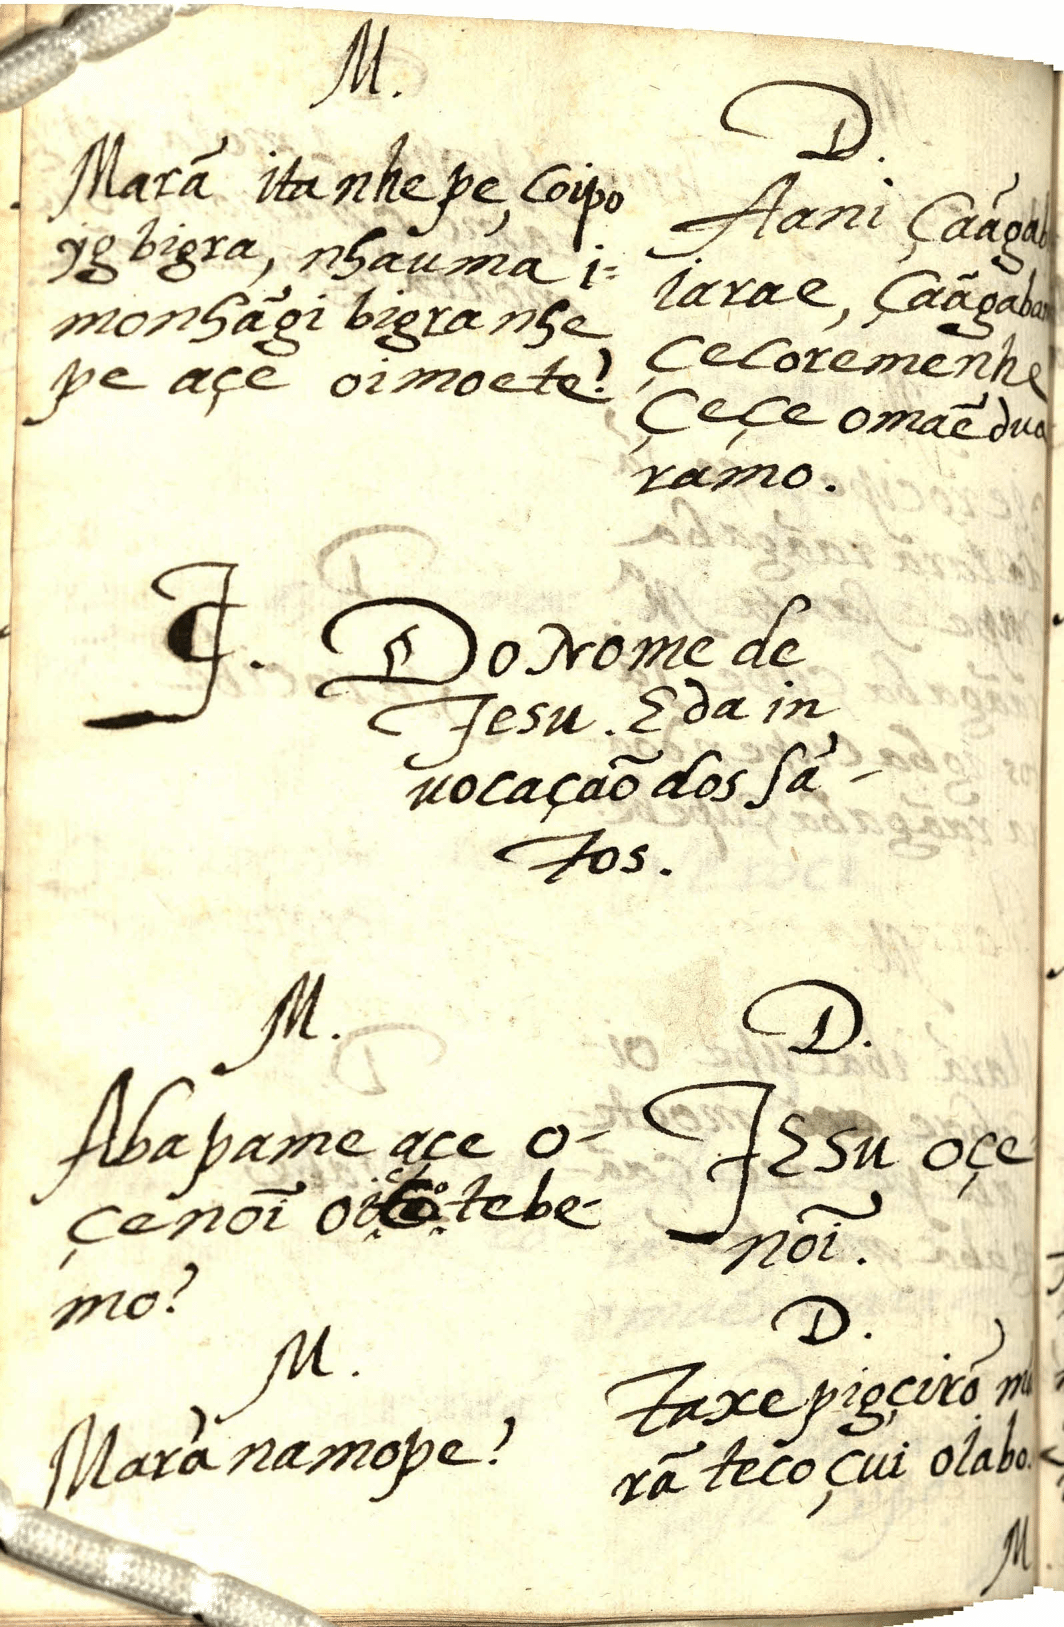 M.
Marã ita nhe pe, Coipo
yg bigra, nhauma i=
monhãgi bigra nhe
pe açe oimoete?
D.
Aani Çaãgab
iarae, Çaãgaba
Çecoremenhe
Çeçe omaẽdua
ramo.
J. Do Nome de
Jesu. E da in
uocação dos Sã-
tos.
M.
Aba pame açe o-
çenoĩ tebe-
mo?
D.
JESu oçe
noĩ.
M.
Marã namope?
D.
Taxe pigçirõ ma
rã teco çui oiabo.
M